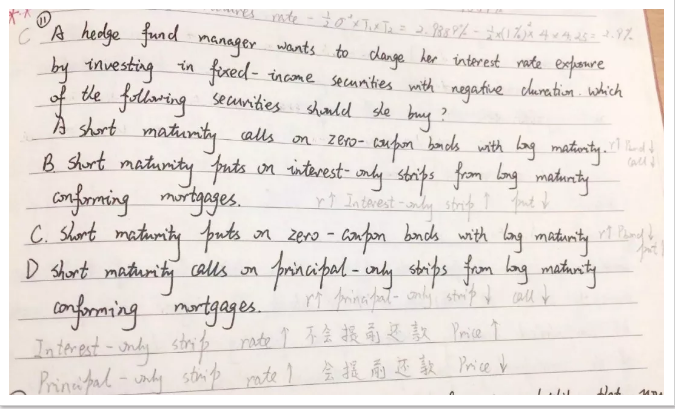 rate - ½σ²×T₁×T₂ = 2.9884% - ½×(1%)²×4×4.25= 2.9%
C ⑪ A hedge fund manager wants to change her interest rate exposure
by investing in fixed-income securities with negative duration. which
of the following securities should she buy?
A short maturity calls on zero-coupon bonds with long maturity. r↑ Pbond↓
call↓
B. short maturity puts on interest-only strips from long maturity
conforming mortgages. r↑ Interest-only strip ↑ put ↓
C. short maturity puts on zero-coupon bonds with long maturity r↑ Pbond↓
put↑
D short maturity calls on principal-only strips from long maturity
conforming mortgages. r↑ principal-only strip ↓ call ↓
Interest-only strip rate ↑ 不会提前还款 Price ↑
Principal-only strip rate ↑ 会提前还款 Price ↓